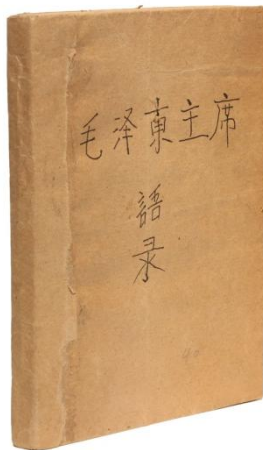 毛泽東主席
語录